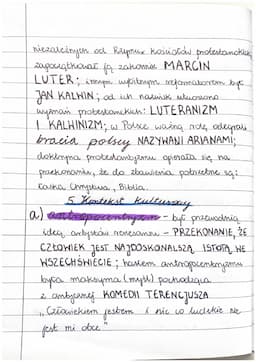 niezależnych od Rzymu kościołów protestanckich
zapoczątkował ją zakonnik MARCIN
LUTER; innym wybitnym reformatorem był
JAN KALWIN; od ich nazwisk utworzono
wyznań protestanckich: LUTERANIZM
I KALWINIZM; w Polsce ważną rolę odegrali
bracia polscy NAZYWANI ARIANAMI;
doktryna protestantyzmu opierała się na
przekonaniu, że do zbawienia potrzebne są:
Łaska Chrystusa, Biblia.
5. Kontekst kulturowy
a) antropocentryzm - był przewodnią
ideą artystów renesansu - PRZEKONANIE, ŻE
CZŁOWIEK JEST NAJDOSKONALSZĄ ISTOTĄ WE
WSZECHŚWIECIE; hasłem antropocentryzmu
była maksyma (myśl) pochodząca
z antycznej KOMEDII TERENCJUSZA
„Człowiekiem jestem i nic co ludzkie nie
jest mi obce"